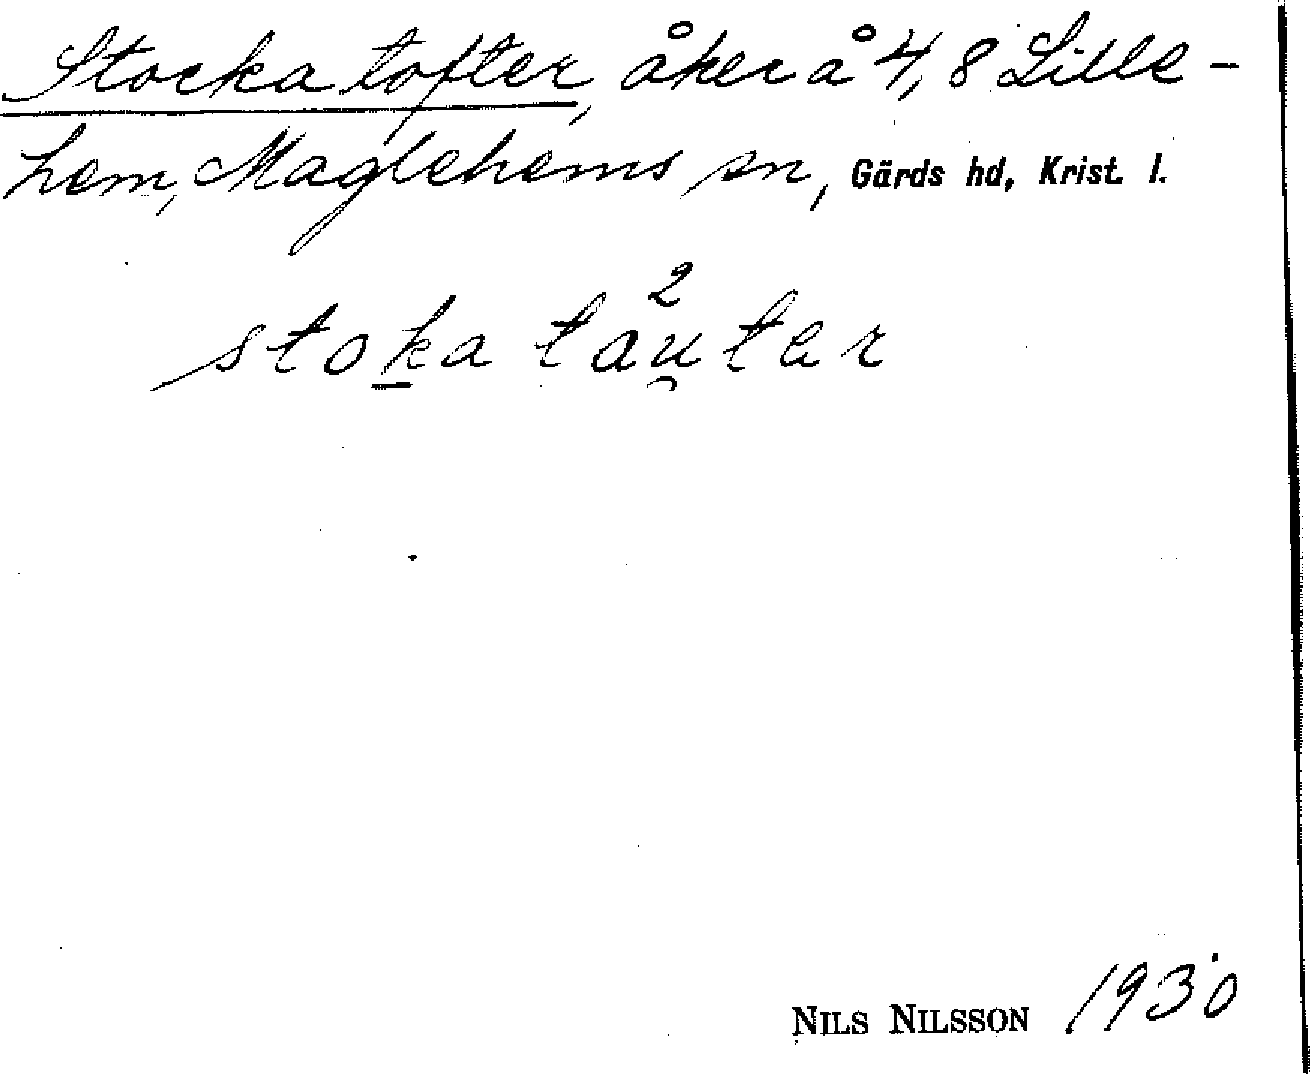 Stocka tofter, åker å 4, 8 Lille-
hem, Maglehems sn, Gärds hd, Krist. l.
2
stoka tau̯ter
NILS NILSSON 1930